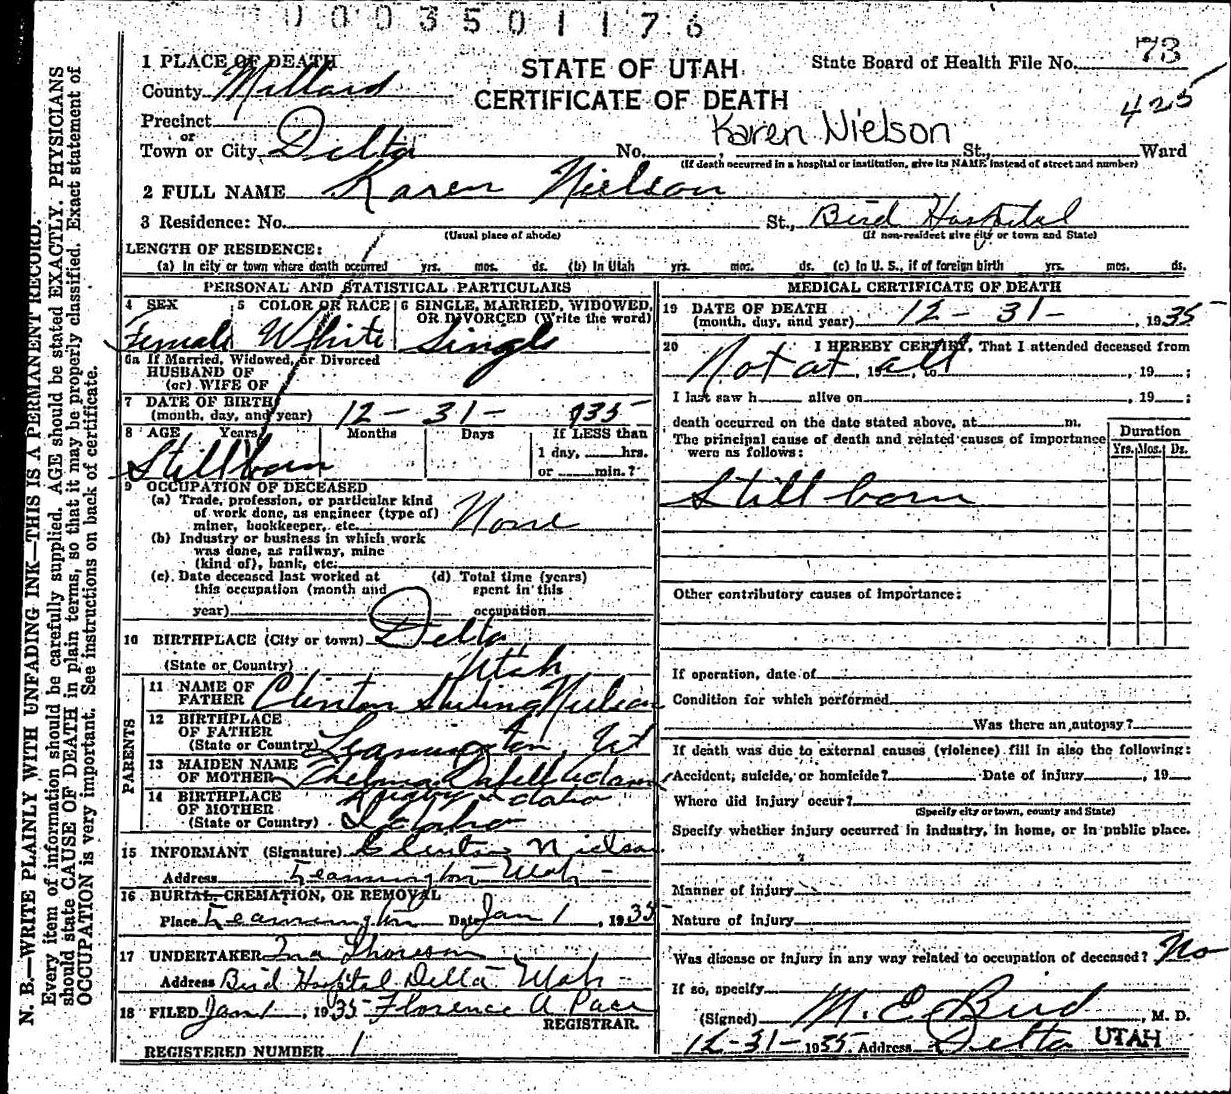 0003501176
73
425
STATE OF UTAH
CERTIFICATE OF DEATH
State Board of Health File No.
1 PLACE OF DEATH
County Millard
Precinct
or
Town or City Delta No. , Karen Nielson St., Ward
(If death occurred in a hospital or institution, give its NAME instead of street and number)
2 FULL NAME Karen Nielson
3 Residence: No. St., Bird Hospital
(Usual place of abode) (If non-resident give city or town and State)
LENGTH OF RESIDENCE:
(a) In city or town where death occurred yrs. mos. ds. (b) In Utah yrs. mos. ds. (c) In U. S., if of foreign birth yrs. mos. ds.
PERSONAL AND STATISTICAL PARTICULARS
4 SEX Female
5 COLOR OR RACE White
6 SINGLE, MARRIED, WIDOWED,
OR DIVORCED (Write the word)
Single
6a If Married, Widowed, or Divorced
HUSBAND OF
(or) WIFE OF
7 DATE OF BIRTH
(month, day, and year) 12-31-935
8 AGE Years Months Days If LESS than
1 day, hrs.
or min.?
Stillborn
9 OCCUPATION OF DECEASED
(a) Trade, profession, or particular kind
of work done, as engineer (type of)
miner, bookkeeper, etc. None
(b) Industry or business in which work
was done, as railway, mine
(kind of), bank, etc.
(c) Date deceased last worked at
this occupation (month and
year)
(d) Total time (years)
spent in this
occupation
10 BIRTHPLACE (City or town) Delta
(State or Country) Utah
PARENTS
11 NAME OF
FATHER Clinton Nielson
12 BIRTHPLACE
OF FATHER
(State or Country) Leamington, Ut
13 MAIDEN NAME
OF MOTHER Thelma
14 BIRTHPLACE
OF MOTHER
(State or Country) Idaho
15 INFORMANT (Signature) Clinton Nielson
Address Leamington Utah
16 BURIAL, CREMATION, OR REMOVAL
Place Leamington Date Jan 1, 1935
17 UNDERTAKER
Address Bird Hospital Delta Utah
18 FILED Jan 1, 1935 Florence A Pace
REGISTRAR.
REGISTERED NUMBER 1
MEDICAL CERTIFICATE OF DEATH
19 DATE OF DEATH
(month, day, and year) 12-31-, 1935
20 I HEREBY CERTIFY, That I attended deceased from
Not at all, 19 , to , 19 ;
I last saw h alive on , 19 ;
death occurred on the date stated above, at m.
The principal cause of death and related causes of importance
were as follows:
Duration
Yrs. Mos. Ds.
Still born
Other contributory causes of importance:
If operation, date of
Condition for which performed
Was there an autopsy?
If death was due to external causes (violence) fill in also the following:
Accident, suicide, or homicide? Date of injury , 19
Where did injury occur?
(Specify city or town, county and State)
Specify whether injury occurred in industry, in home, or in public place.
Manner of injury
Nature of injury
Was disease or injury in any way related to occupation of deceased? No
If so, specify
(Signed) M. E. Bird, M. D.
12-31-1935. Address Delta UTAH
N. B.—WRITE PLAINLY WITH UNFADING INK—THIS IS A PERMANENT RECORD.
Every item of information should be carefully supplied. AGE should be stated EXACTLY. PHYSICIANS
should state CAUSE OF DEATH in plain terms, so that it may be properly classified. Exact statement of
OCCUPATION is very important. See instructions on back of certificate.